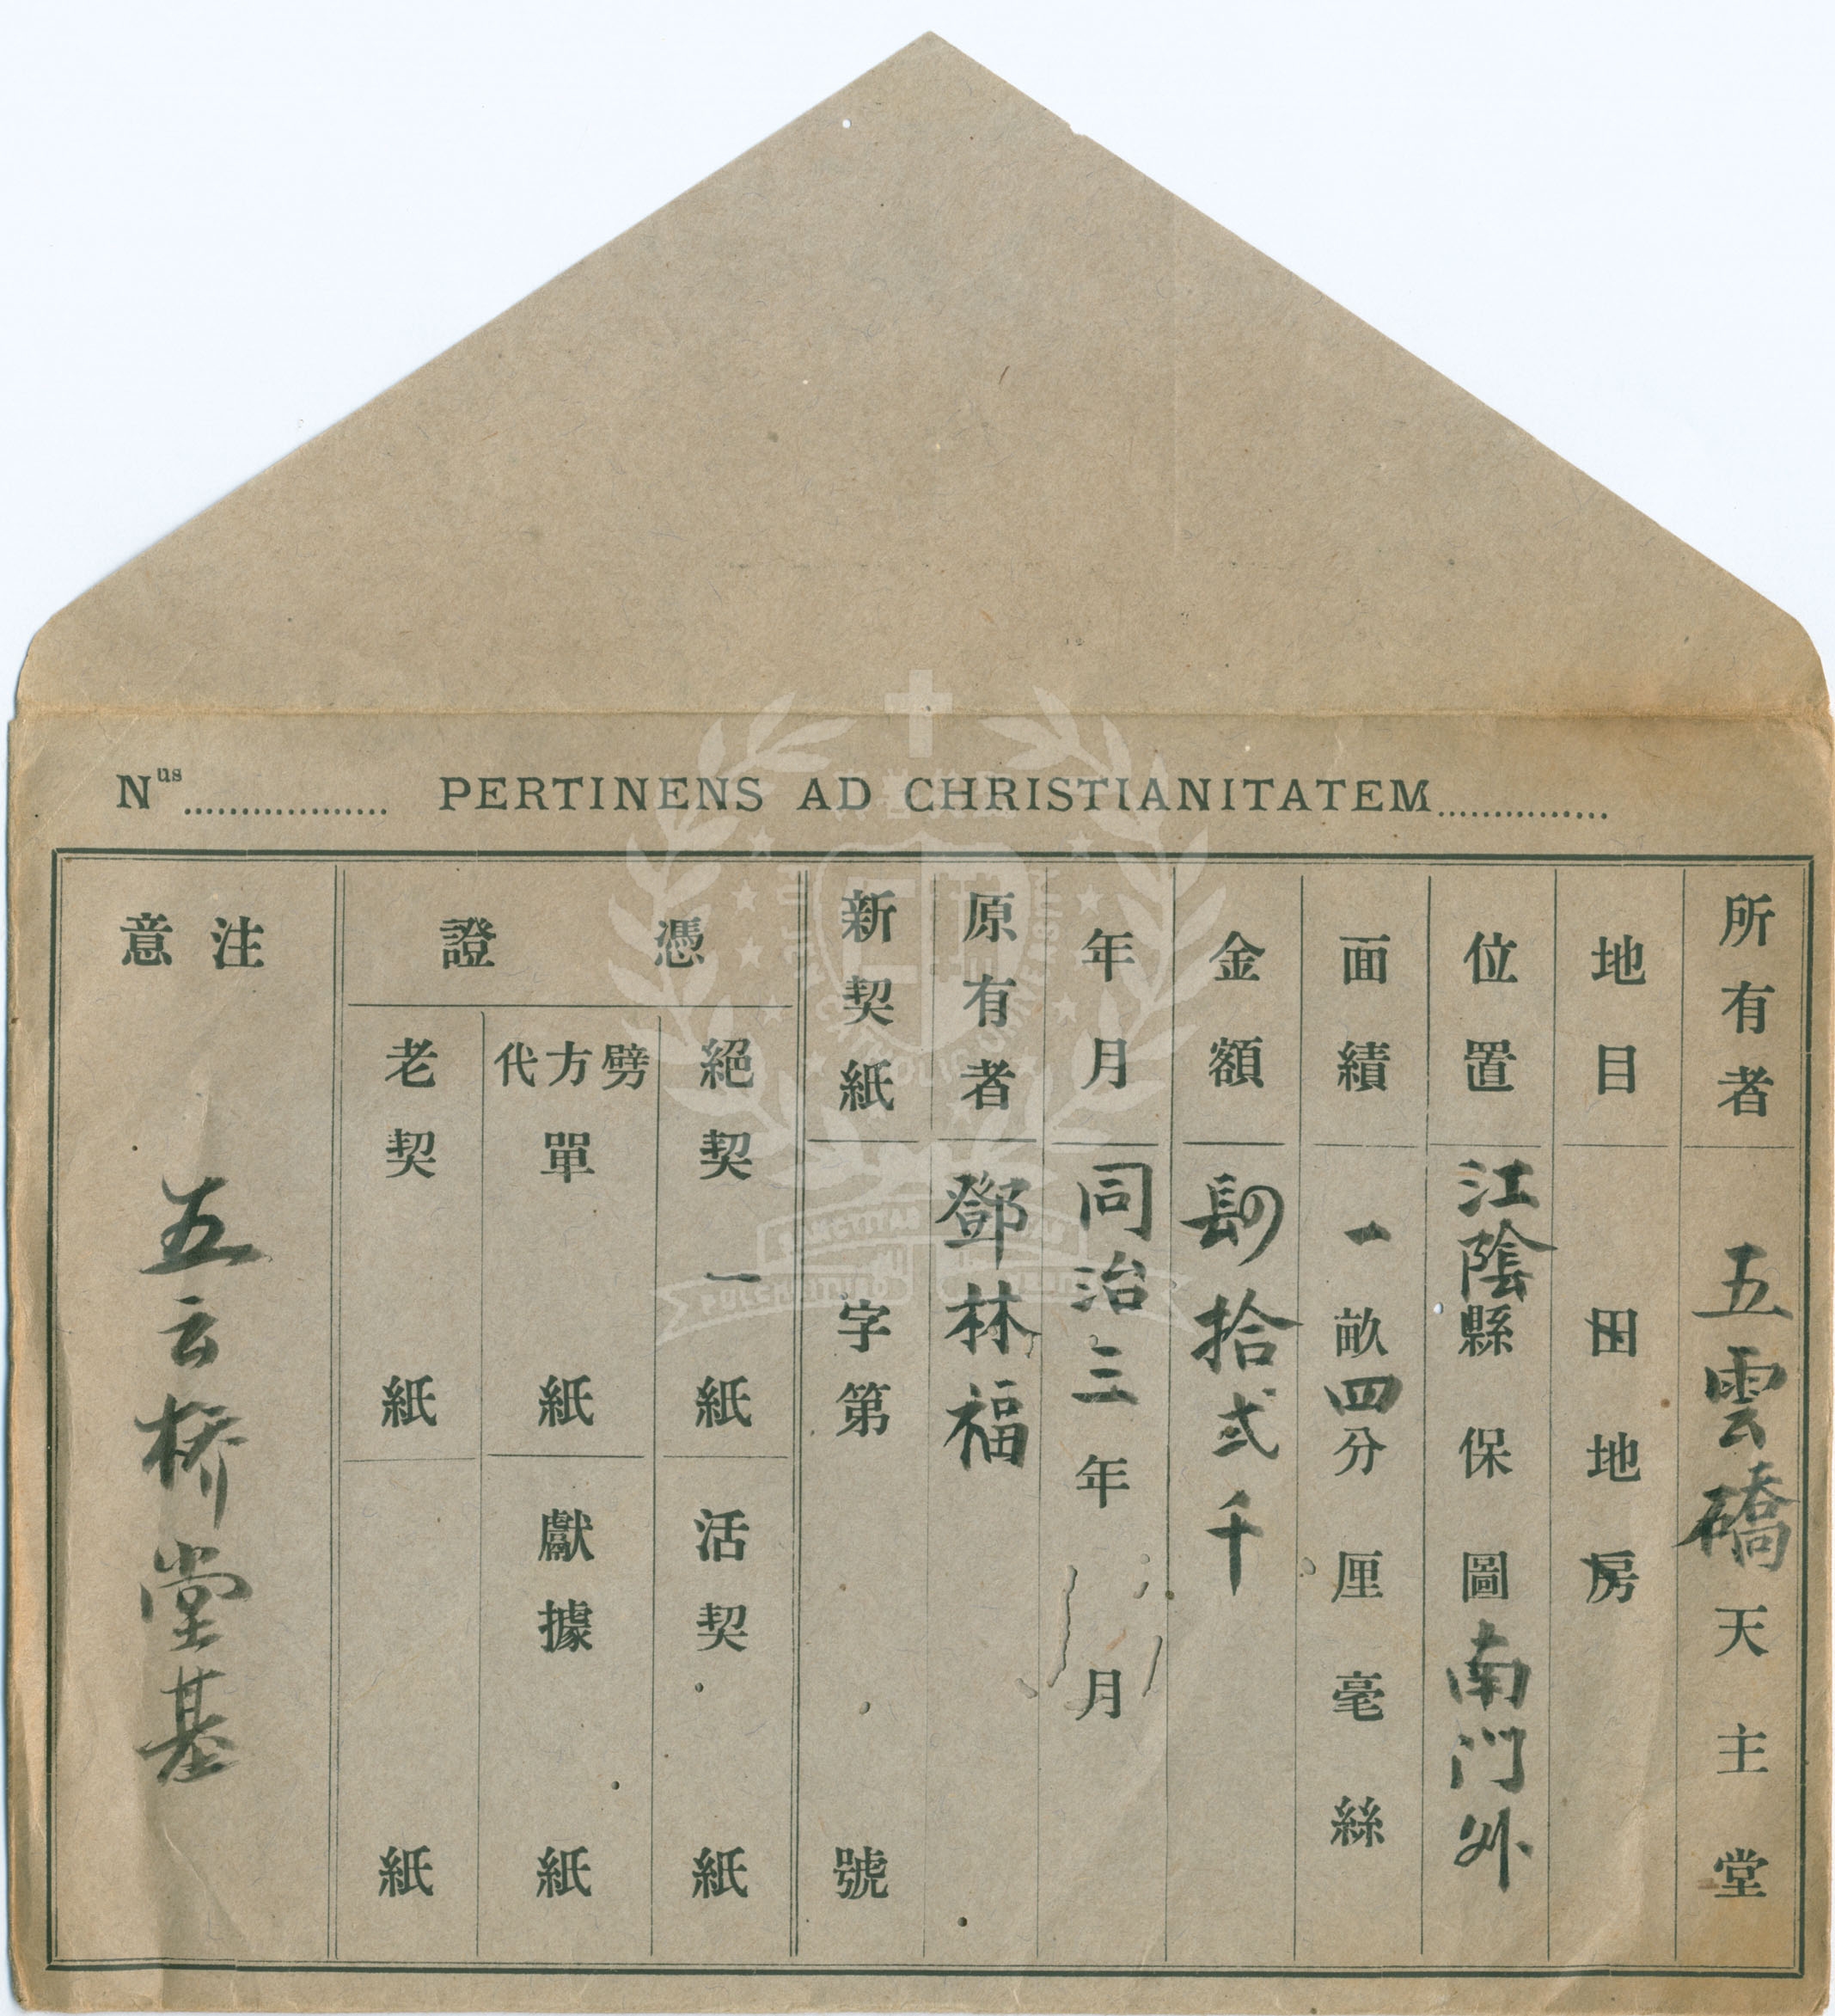 Nus.................. PERTINENS AD CHRISTIANITATEM...............
所有者 五雲礄天主堂
地目 田地房
位置 江陰縣保圖南门外
面績 一畝四分厘毫絲
金額 拾弍千
年月 同治三年月
原有者 鄧林福
新契紙 字第號
憑證
絕契一紙 活契紙
劈方代單紙 獻據紙
老契紙 紙
注意
五云桥堂基